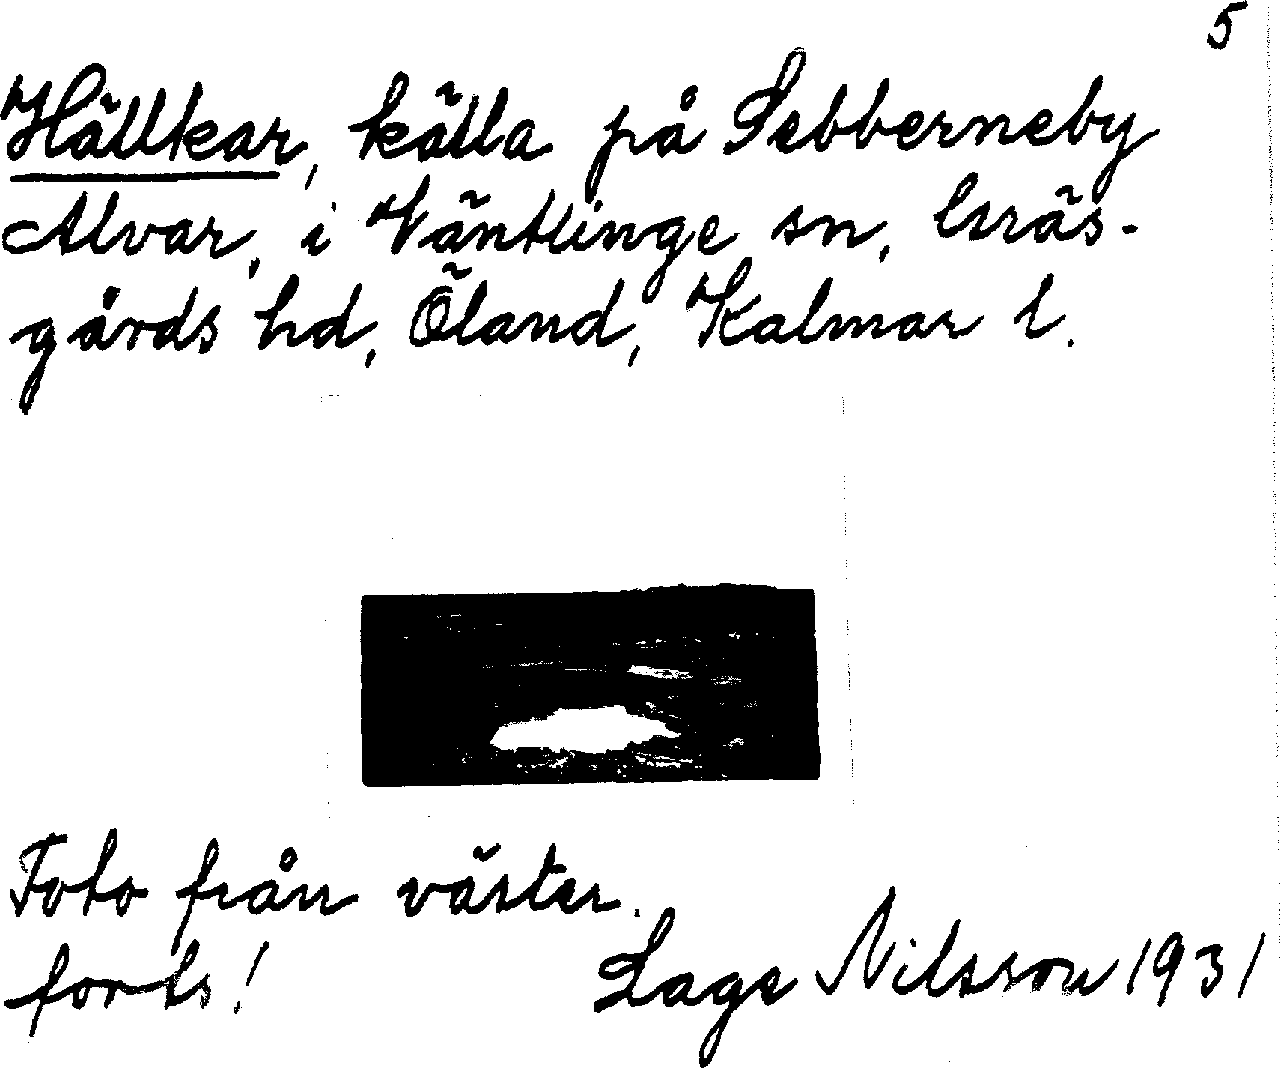 5
Hällkar, källa på Sebberneby
Alvar, i Väntlinge sn, Gräs-
gårds hd, Öland, Kalmar l.
Foto från väster.
forts!
Lage Nilsson 1931